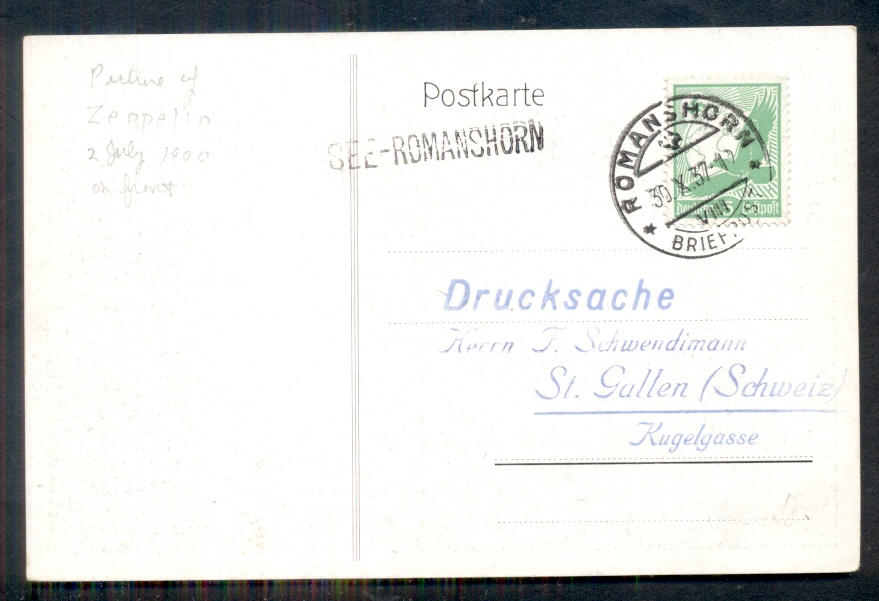 Picture of
Zeppelin
2 July 1900
on front
Postkarte
SEE-ROMANSHORN
ROMANSHORN
30.X.37
VIII
BRIEF
Drucksache
Herrn F. Schwendimann
St. Gallen (Schweiz)
Kugelgasse